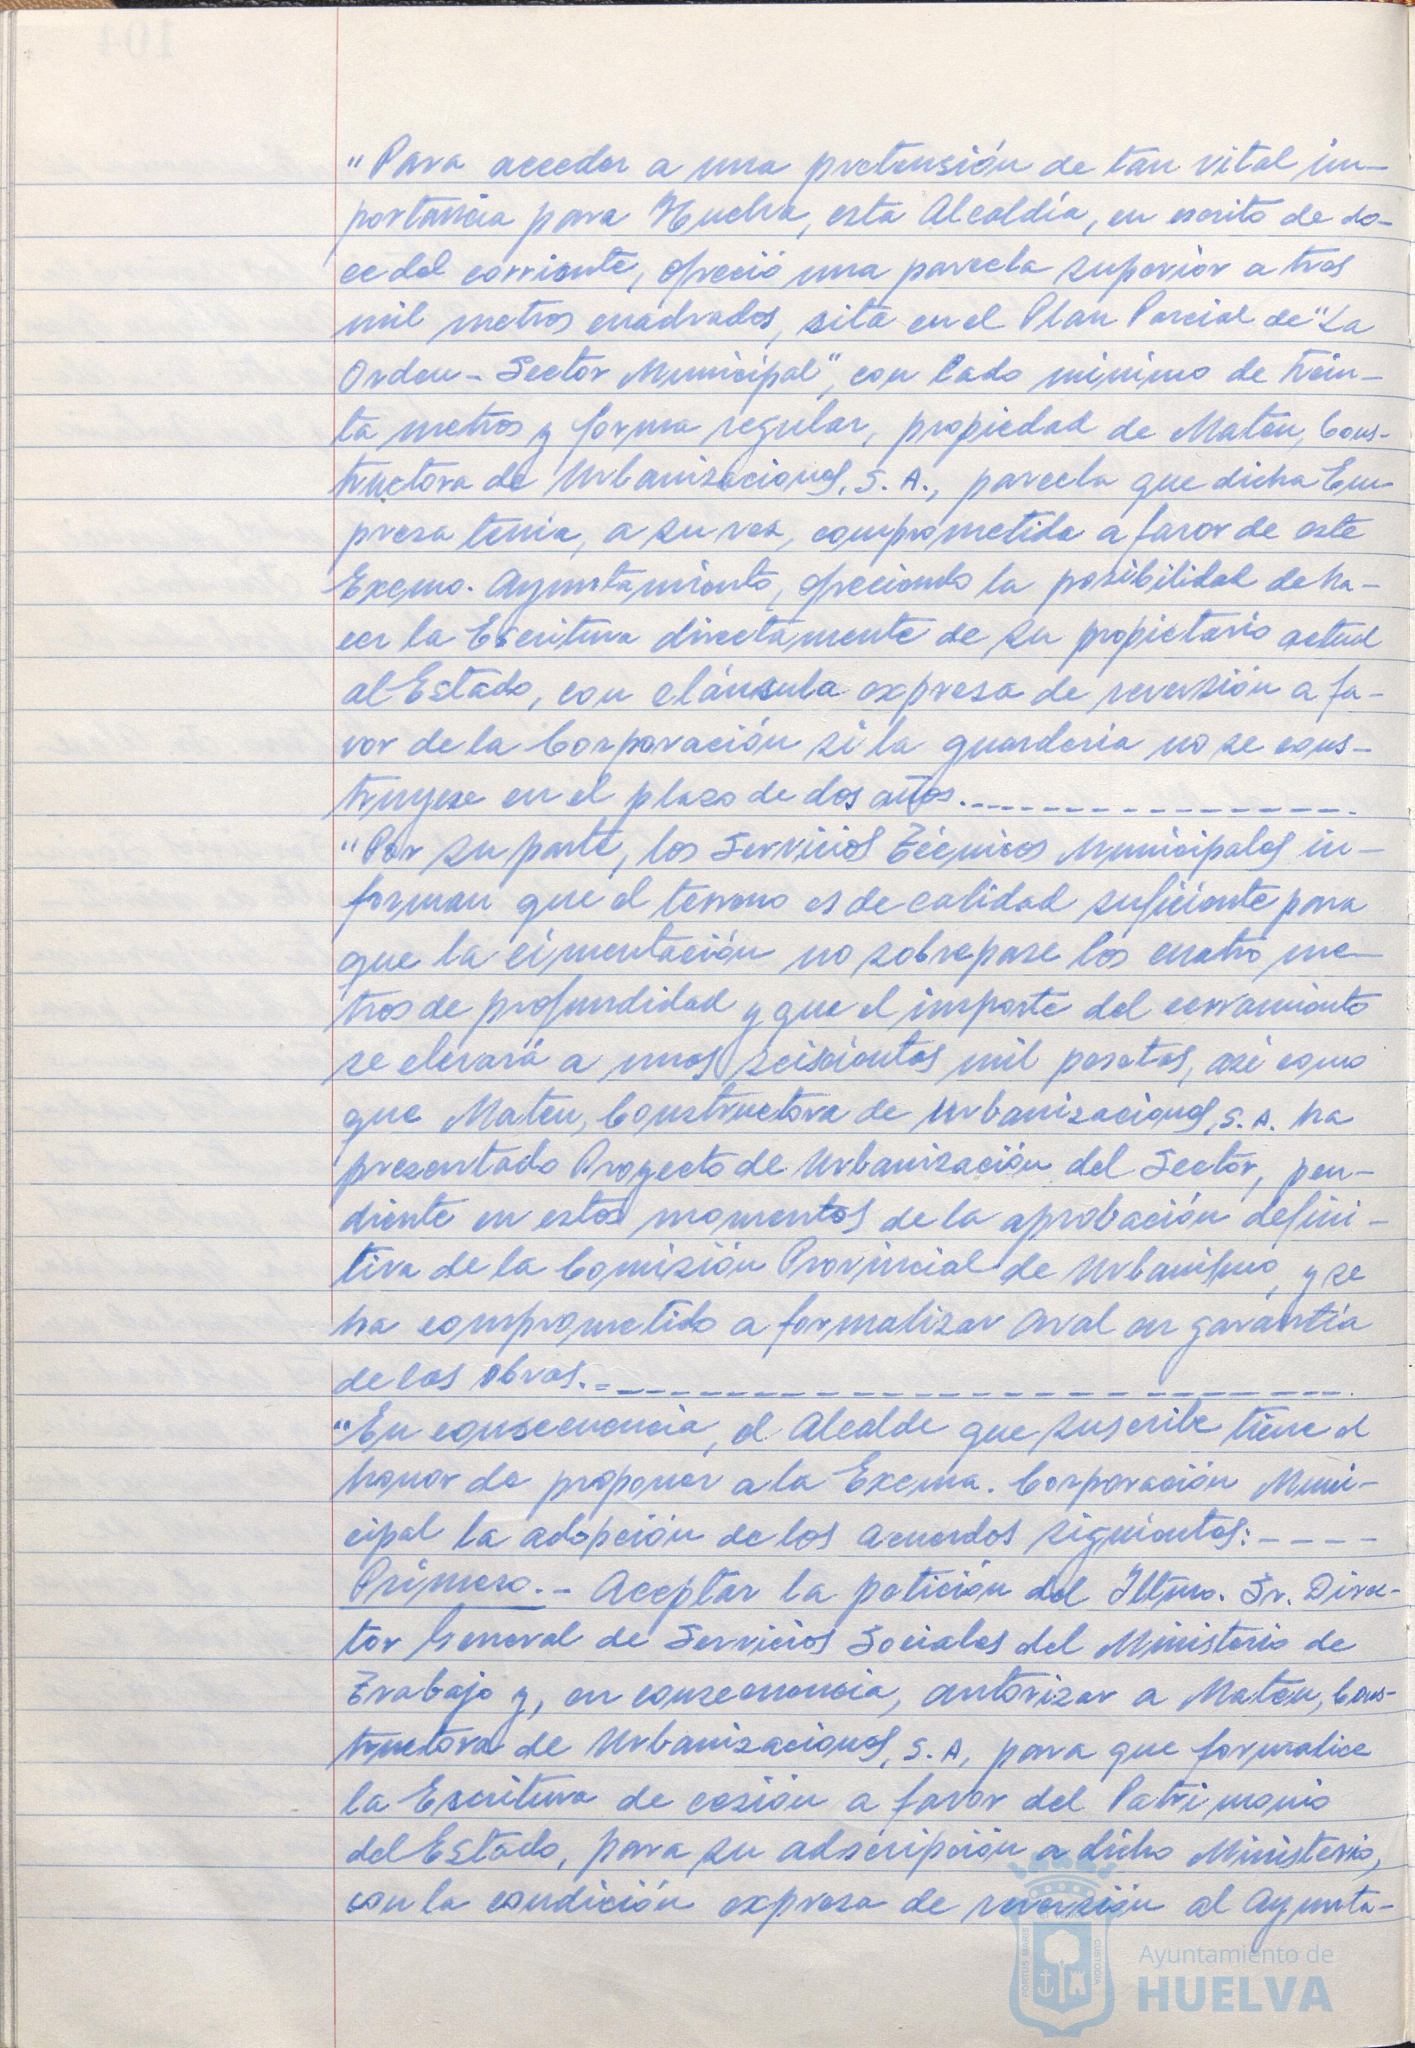 "Para acceder a una pretensión de tan vital im-
portancia para Huelva, esta Alcaldía, en escrito de do-
ce del corriente, ofreció una parcela superior a tres
mil metros cuadrados, sita en el Plan Parcial de "La
Orden - Sector Municipal", con lado mínimo de trein-
ta metros y forma regular, propiedad de Mateu, Cons-
tructora de Urbanizaciones, S. A., parcela que dicha Em-
presa tenia, a su vez, comprometida a favor de este
Excmo. Ayuntamiento, ofreciendo la posibilidad de ha-
cer la Escritura directamente de su propietario actual
al Estado, con cláusula expresa de reversión a fa-
vor de la Corporación si la guardería no se cons-
truyese en el plazo de dos años.- - - - - - - - - - - - -.
"Por su parte, los Servicios Técnicos Municipales in-
forman que el terreno es de calidad suficiente para
que la cimentación no sobrepase los cuatro me-
tros de profundidad y que el importe del cerramiento
se elevará a unas seiscientas mil pesetas, asi como
que Mateu, Constructora de Urbanizaciones, S. A. ha
presentado Proyecto de Urbanización del Sector, pen-
diente en estos momentos de la aprobación defini-
tiva de la Comisión Provincial de Urbanismo, y se
ha comprometido a formalizar Aval en garantía
de las obras.- - - - - - - - - - - - - - - - - - - - - - -.
"En consecuencia, el Alcalde que suscribe tiene el
honor de proponer a la Excma. Corporación Muni-
cipal la adopción de los acuerdos siguientes: - - - -
Primero.- Aceptar la petición del Iltmo. Sr. Direc-
tor General de Servicios Sociales del Ministerio de
Trabajo y, en consecuencia, autorizar a Mateu, Cons-
tructora de Urbanizaciones, S. A, para que formalice
la Escritura de cesión a favor del Patrimonio
del Estado, para su adscripción a dicho Ministerio,
con la condición expresa de reversión al Ayunta-
PORTUS MARIS
CUSTODIA
Ayuntamiento de
HUELVA